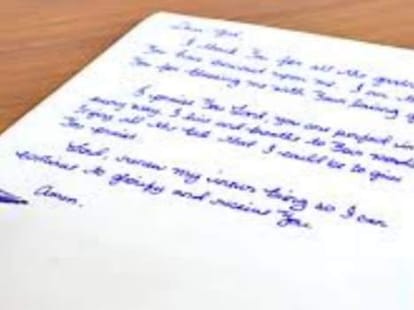 Dear God,
I thank You for all the
You have upon me. I am
You for blessing me with Your loving
I praise You Lord, you are perfect in
every way. I live and breathe to Your
all the that I could be to give
You praise.
Lord, renew my inner being so I can
continue to glorify and You.
Amen.